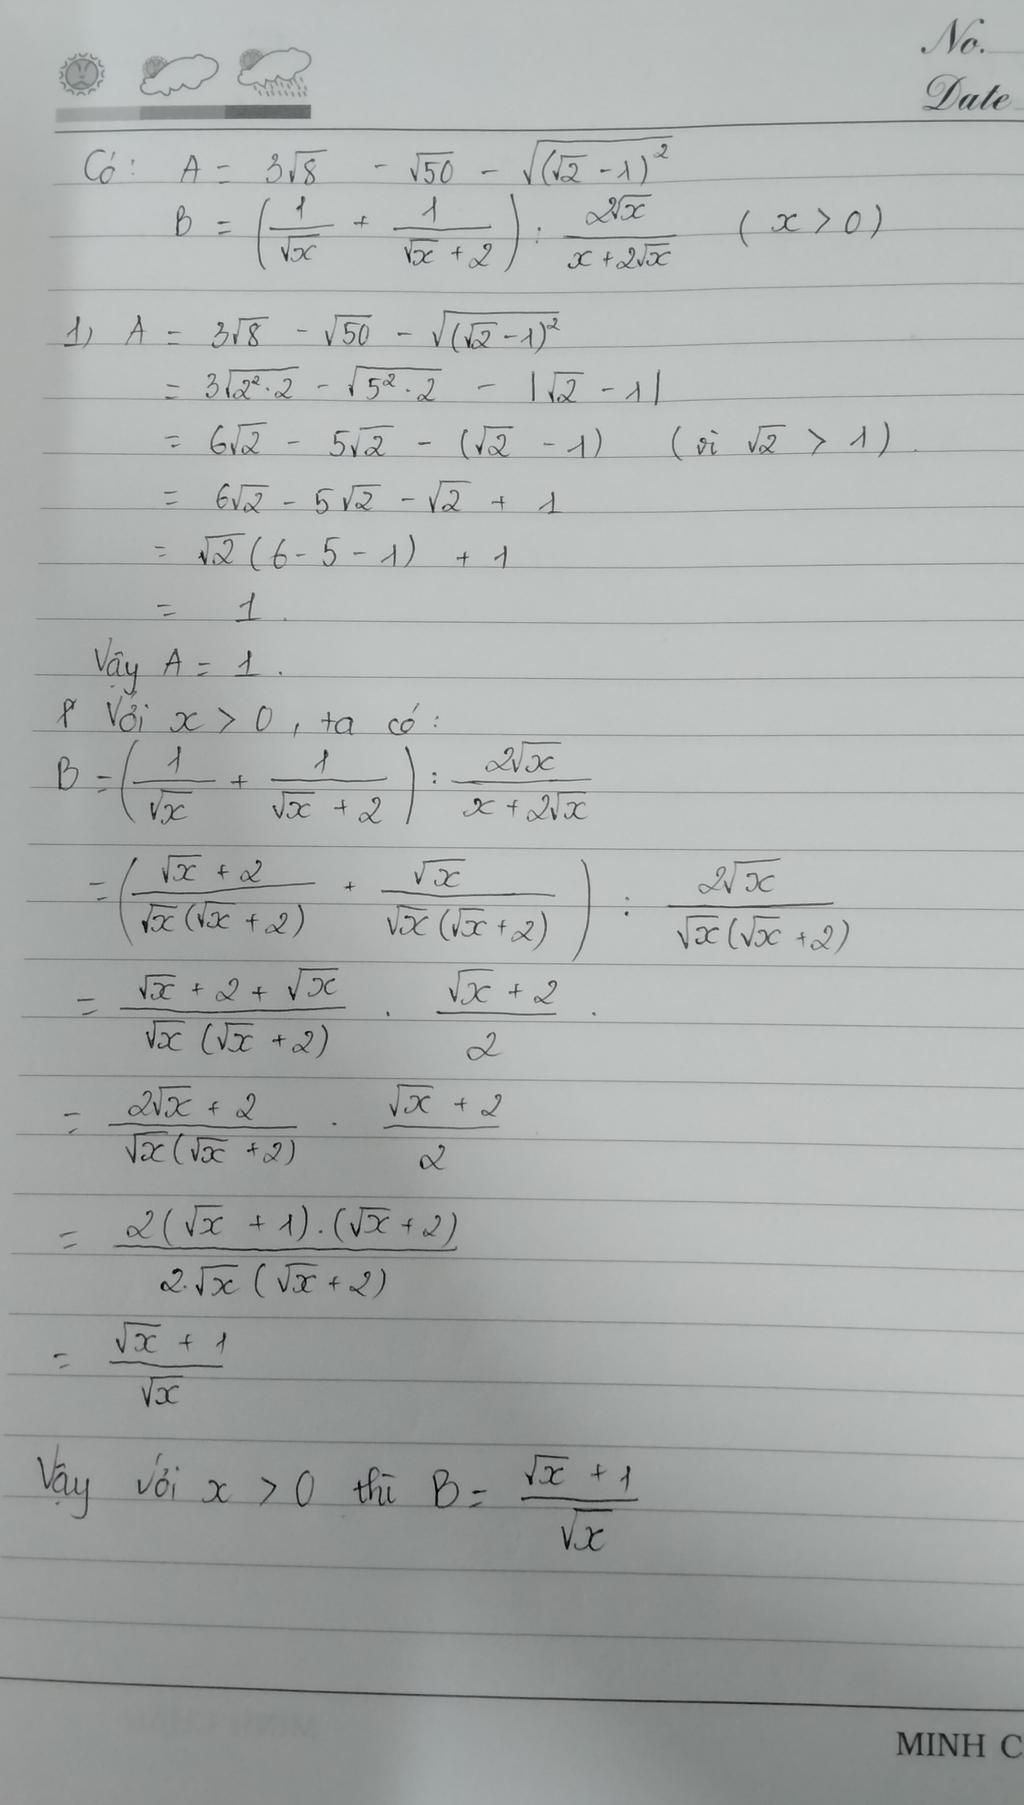 No.
Date
Có: A = 3√8 - √50 - √((√2 - 1)²)
B = (1/√x + 1/(√x + 2)) : 2√x/(x + 2√x) (x > 0)
1, A = 3√8 - √50 - √((√2 - 1)²)
= 3√(2²·2) - √(5²·2) - |√2 - 1|
= 6√2 - 5√2 - (√2 - 1) (vì √2 > 1).
= 6√2 - 5√2 - √2 + 1
= √2(6 - 5 - 1) + 1
= 1.
Vậy A = 1.
* Với x > 0, ta có:
B = (1/√x + 1/(√x + 2)) : 2√x/(x + 2√x)
= ((√x + 2)/(√x(√x + 2)) + √x/(√x(√x + 2))) : 2√x/(√x(√x + 2))
= (√x + 2 + √x)/(√x(√x + 2)) . (√x + 2)/2 .
= (2√x + 2)/(√x(√x + 2)) . (√x + 2)/2
= (2(√x + 1).(√x + 2))/(2.√x(√x + 2))
= (√x + 1)/√x
Vậy với x > 0 thì B = (√x + 1)/√x
MINH C